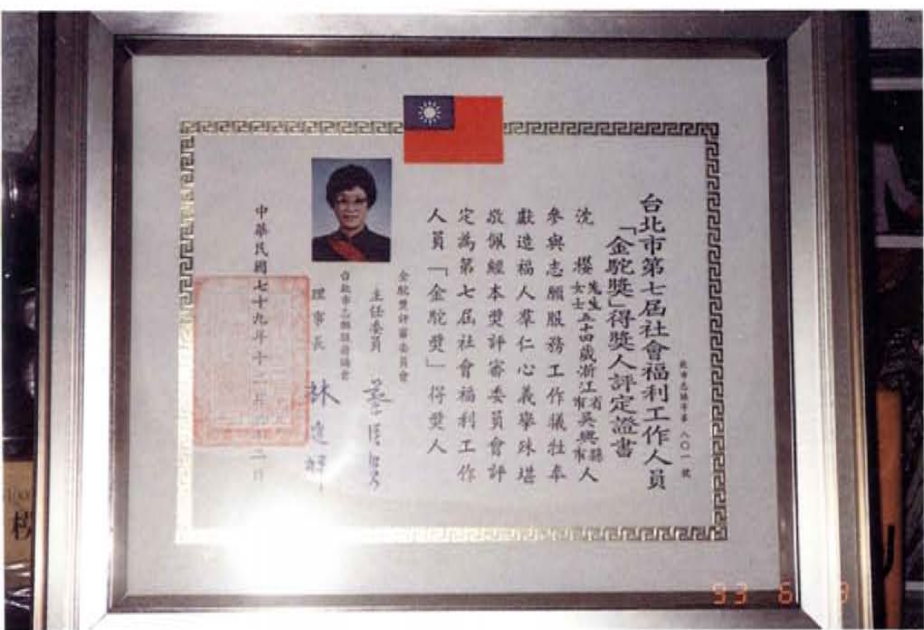 台北市第七屆社會福利工作人員
「金駝獎」得獎人評定證書
沈櫻先生女士五十四歲浙江省市吳興縣市人
參與志願服務工作犧牲奉
獻造福人羣仁心義舉殊堪
欽佩經本獎評審委員會評
定為第七屆社會福利工作
人員「金駝獎」得獎人
金駝獎評審委員會
主任委員
台北市志願服務協會
理事長 林
中華民國七十九年十二月
93 6